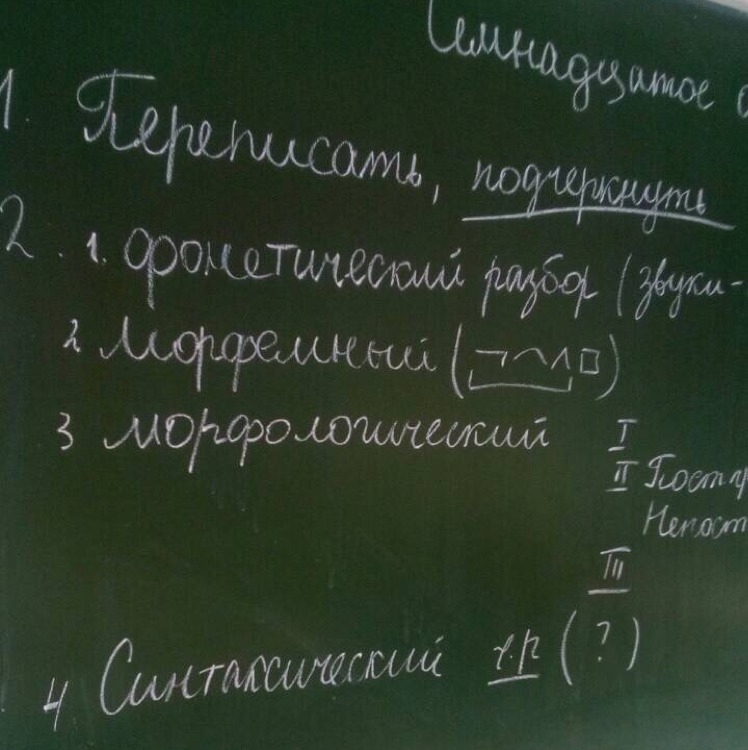 Семнадцатое
1. Переписать, подчеркнуть
2. 1. фонетический разбор (звуки-
2 морфемный (¬⌒∧□)
3 морфологический I
II Пост пр
Непост
III
4 Синтаксический ч.р (?)